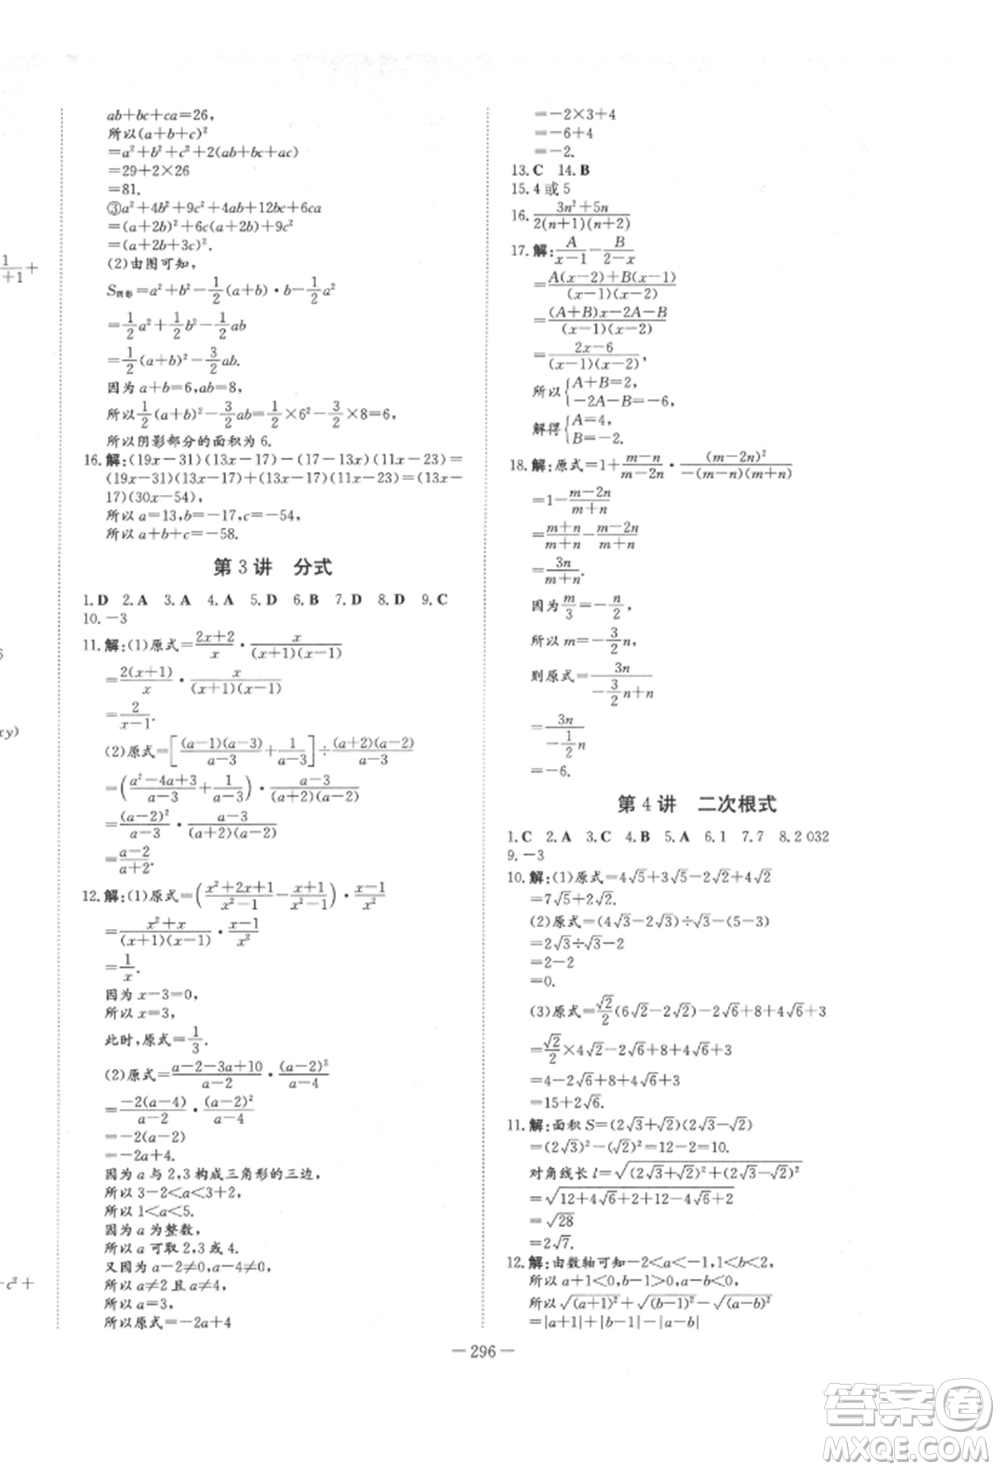 1/(+1) +
6
xy)
-c²+
ab+bc+ca=26,
所以(a+b+c)²
=a²+b²+c²+2(ab+bc+ac)
=29+2×26
=81.
③a²+4b²+9c²+4ab+12bc+6ca
=(a+2b)²+6c(a+2b)+9c²
=(a+2b+3c)².
(2)由图可知,
S阴影=a²+b²-1/2(a+b)·b-1/2a²
=1/2a²+1/2b²-1/2ab
=1/2(a+b)²-3/2ab.
因为a+b=6,ab=8,
所以1/2(a+b)²-3/2ab=1/2×6²-3/2×8=6.
所以阴影部分的面积为6.
16.解:(19x-31)(13x-17)-(17-13x)(11x-23)=
(19x-31)(13x-17)+(13x-17)(11x-23)=(13x-
17)(30x-54),
所以a=13,b=-17,c=-54,
所以a+b+c=-58.
第3讲 分式
1.D 2.A 3.A 4.A 5.D 6.B 7.D 8.D 9.C
10.-3
11.解:(1)原式=(2x+2)/x·x/((x+1)(x-1))
=2(x+1)/x·x/((x+1)(x-1))
=2/(x-1).
(2)原式=[(a-1)(a-3)/(a-3)+1/(a-3)]÷(a+2)(a-2)/(a-3)
=((a²-4a+3)/(a-3)+1/(a-3))·(a-3)/((a+2)(a-2))
=(a-2)²/(a-3)·(a-3)/((a+2)(a-2))
=(a-2)/(a+2).
12.解:(1)原式=((x²+2x+1)/(x²-1)-(x+1)/(x²-1))·(x-1)/x²
=(x²+x)/((x+1)(x-1))·(x-1)/x²
=1/x.
因为x-3=0,
所以x=3,
此时,原式=1/3.
(2)原式=(a-2-3a+10)/(a-2)·(a-2)²/(a-4)
=-2(a-4)/(a-2)·(a-2)²/(a-4)
=-2(a-2)
=-2a+4.
因为a与2,3构成三角形的三边,
所以3-2<a<3+2,
所以1<a<5.
因为a为整数,
所以a可取2,3或4.
又因为a-2≠0,a-4≠0,
所以a≠2且a≠4,
所以a=3.
所以原式=-2a+4
=-2×3+4
=-6+4
=-2.
13.C 14.B
15.4或5
16.(3n²+5n)/(2(n+1)(n+2))
17.解:A/(x-1)-B/(2-x)
=(A(x-2)+B(x-1))/((x-1)(x-2))
=((A+B)x-2A-B)/((x-1)(x-2))
=(2x-6)/((x-1)(x-2)),
所以{A+B=2,
-2A-B=-6,
解得{A=4,
B=-2.
18.解:原式=1+(m-n)/(m-2n)·(m-2n)²/(-(m-n)(m+n))
=1-(m-2n)/(m+n)
=(m+n)/(m+n)-(m-2n)/(m+n)
=3n/(m+n).
因为m/3=-n/2,
所以m=-3/2n,
则原式=3n/(-3/2n+n)
=3n/(-1/2n)
=-6.
第4讲 二次根式
1.C 2.A 3.C 4.B 5.A 6.1 7.7 8.2 032
9.-3
10.解:(1)原式=4√5+3√5-2√2+4√2
=7√5+2√2.
(2)原式=(4√3-2√3)÷√3-2
=2√3÷√3-2
=2-2
=0.
(3)原式=√2/2(6√2-2√3)+8+4√6+3
=√2/2×4√2-2√6+8+4√6+3
=4-2√6+8+4√6+3
=15+2√6.
11.解:面积S=(2√3+√2)(2√3-√2)
=(2√3)²-(√2)²=12-2=10.
对角线长l=√((2√3+√2)²+(2√3-√2)²)
=√(12+4√6+2+12-4√6+2)
=√28
=2√7.
12.解:由数轴可知-2<a<-1,1<b<2,
所以a+1<0,b-1>0,a-b<0,
所以√(a+1)²+√(b-1)²-√(a-b)²
=|a+1|+|b-1|-|a-b|
— 296 —
答案圈
MXQE.COM